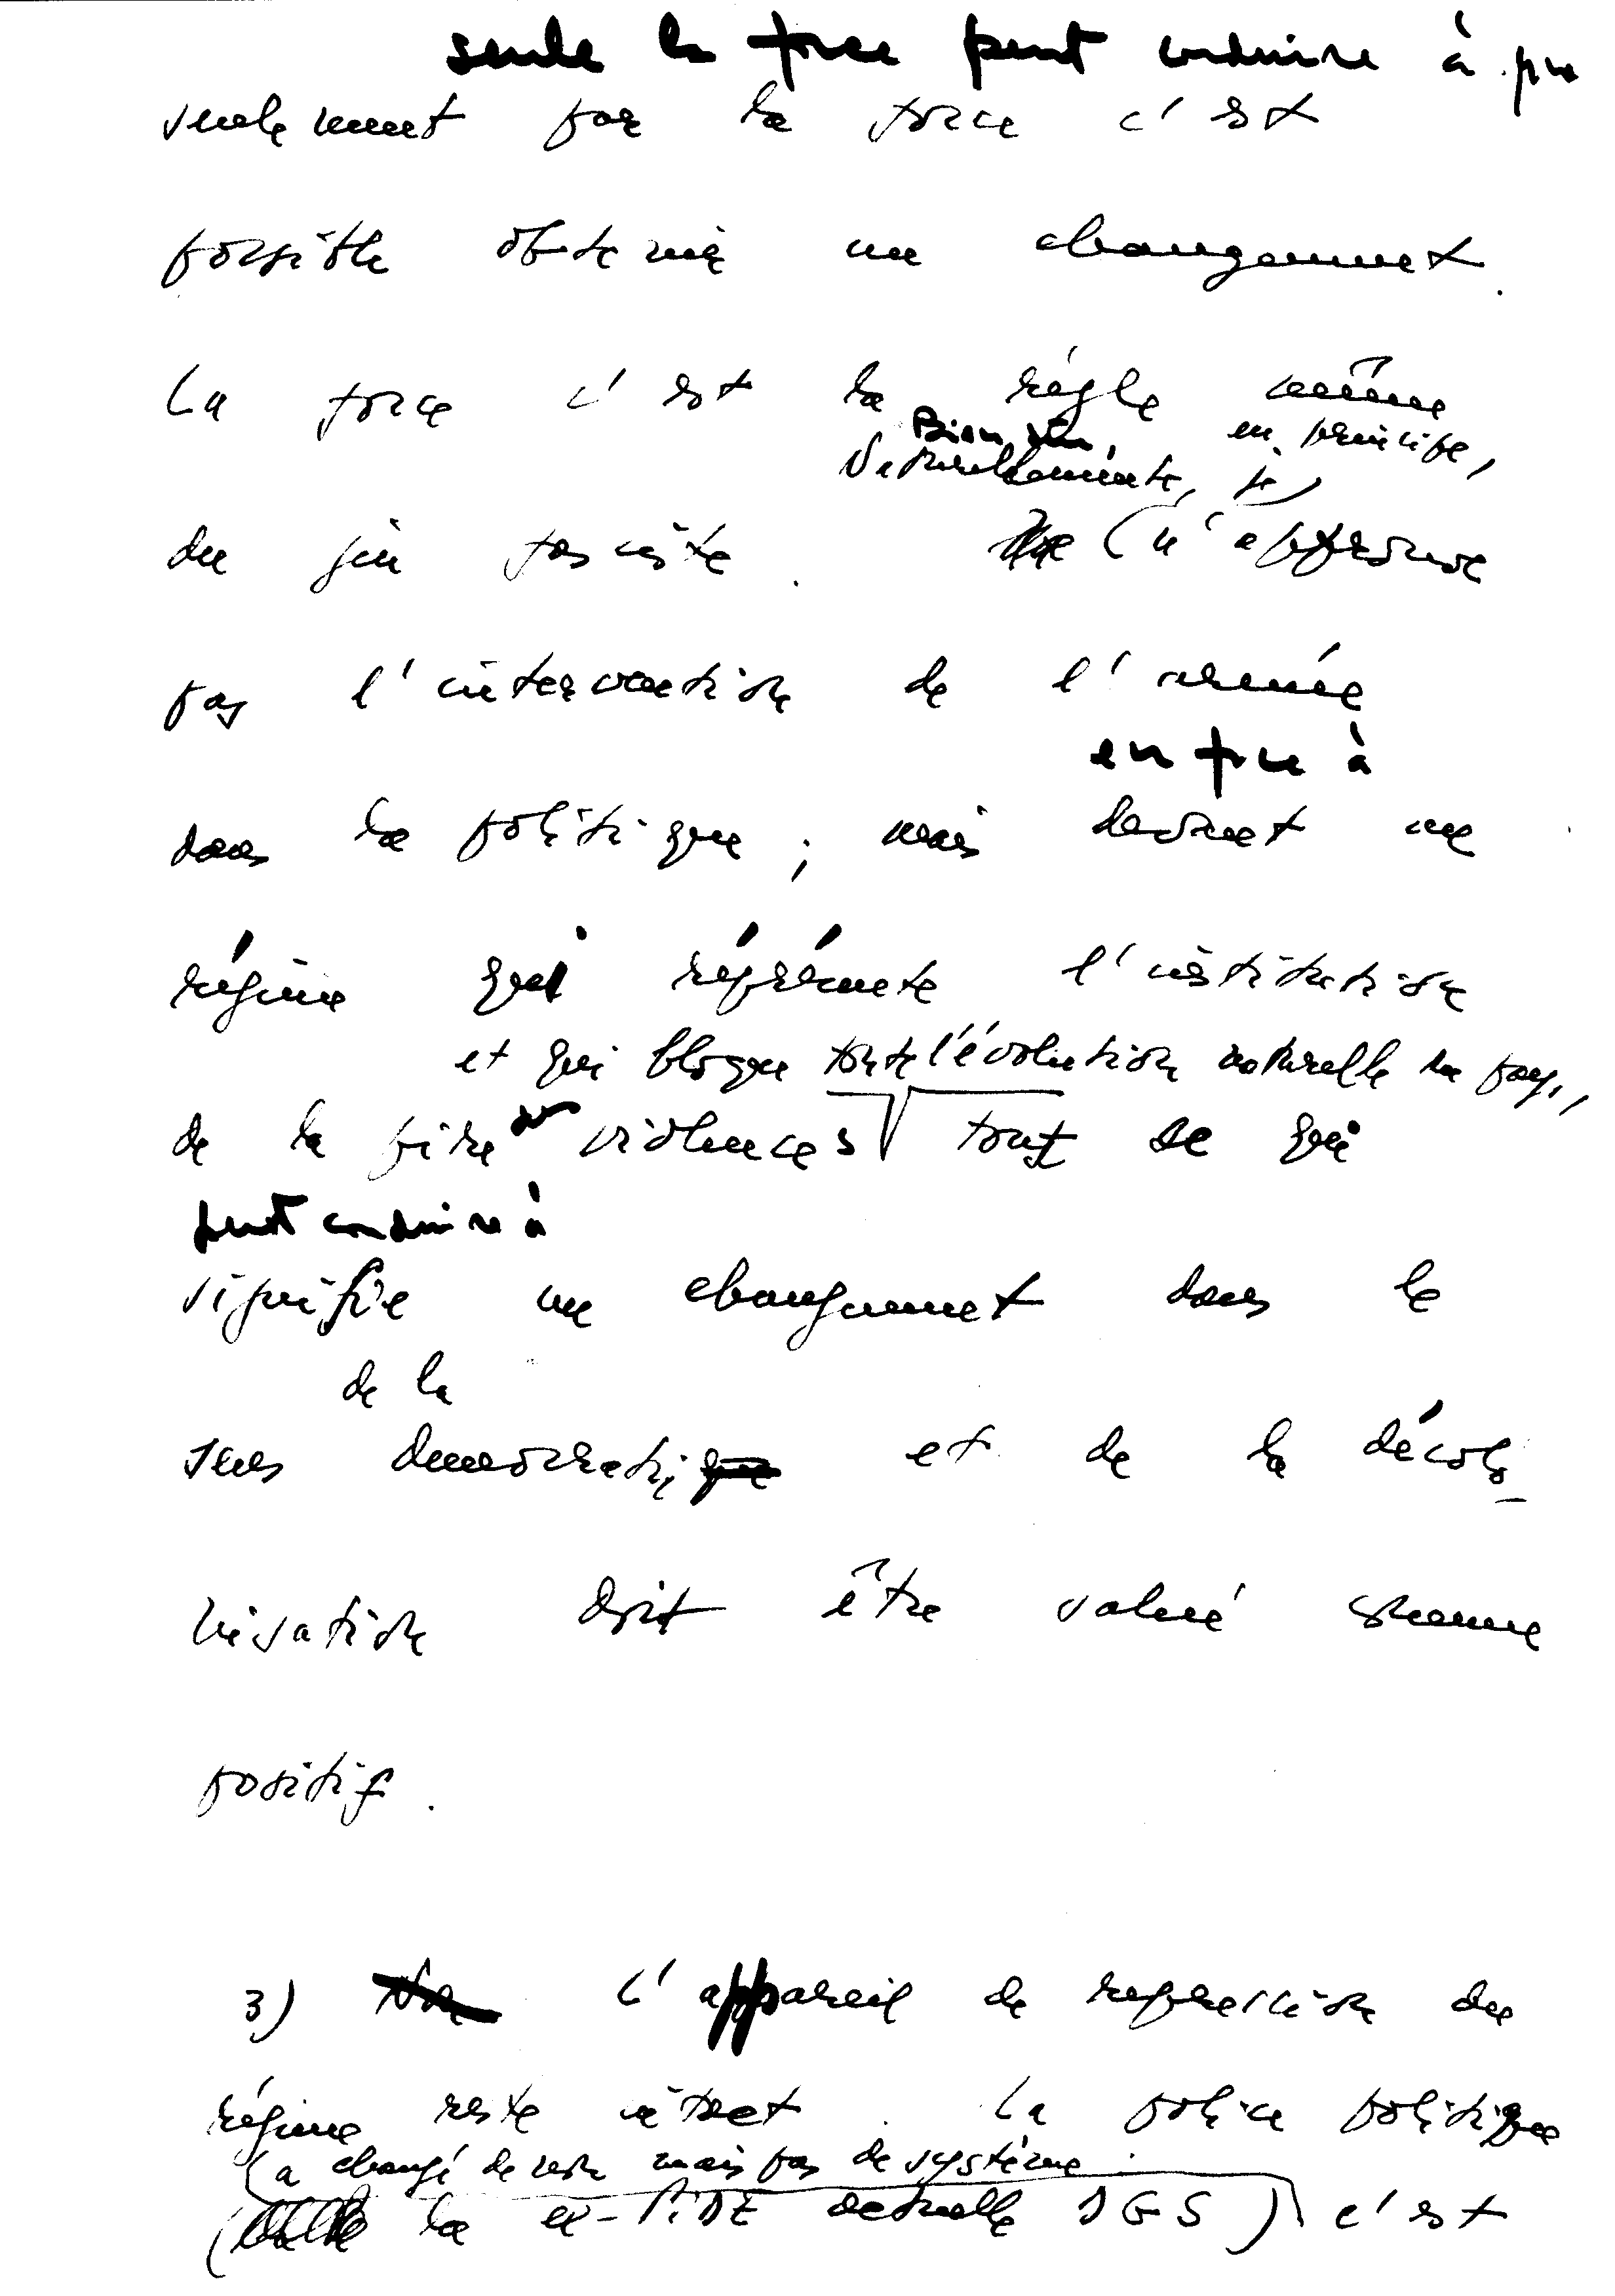 seule la force peut conduire à
seulement par la force c'est
possible obtenir un changement.
La force c'est la règle même
Bien sûr, en principe,
Naturellemente, je
du jeu fasciste. n'approuve
pas l'intervention de l'armée
en face à
dans la politique ; mais devant un
régime qui réprésente l'institution
et qui bloque toute l'évolution naturelle du pays,
de la pire des violences tout se qui
peut conduire à
signifie un changement dans le
de la
sens democratique et de la décolo-
nisation doit être valué comme
positif.
3) Na L'appareil de repression du
régime reste intact. La police politique
a changé de nom mais pas de système.
( la ex-PIDE actuelle DGS) c'est